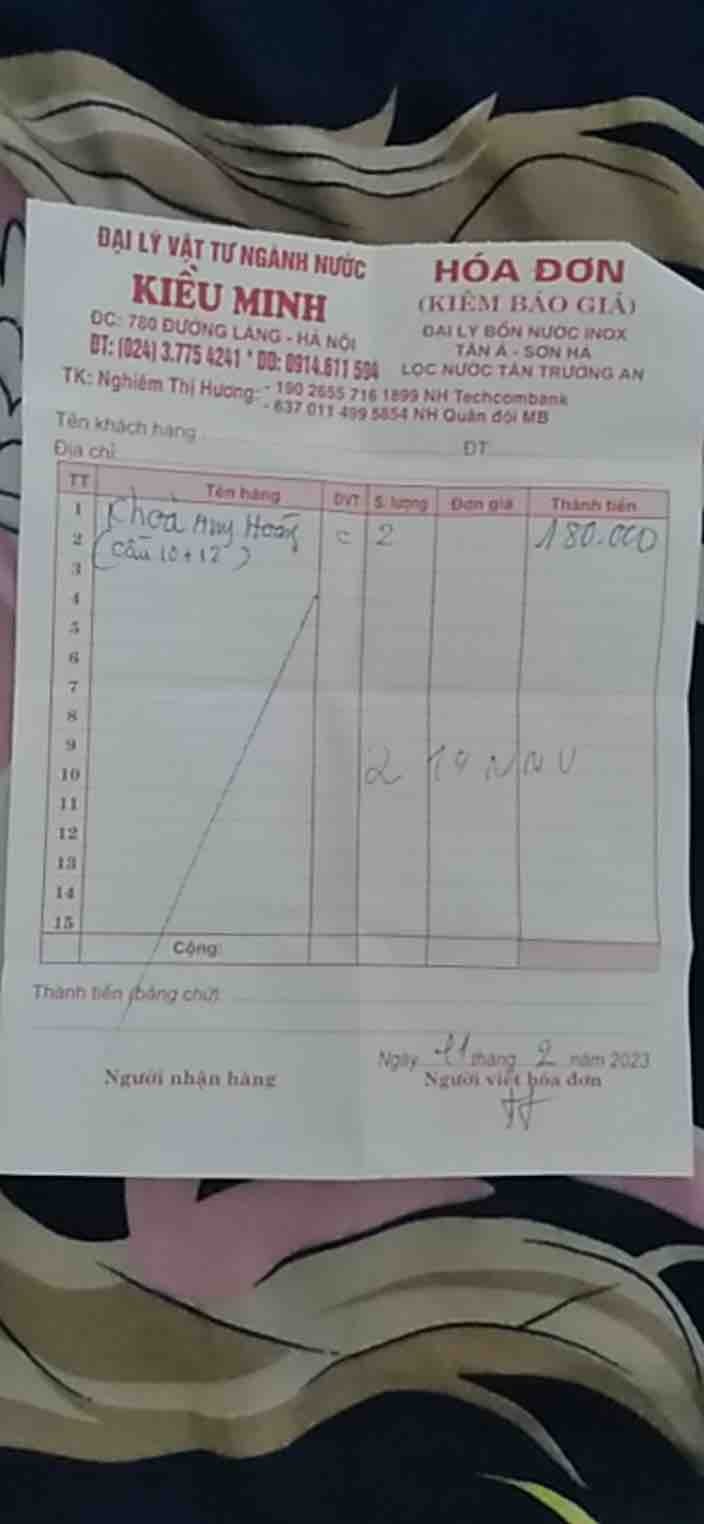 ĐẠI LÝ VẬT TƯ NGÀNH NƯỚC
KIỀU MINH
ĐC: 780 ĐƯỜNG LÁNG - HÀ NỘI
ĐT: (024) 3.775 4241 * DĐ: 0914.611 594
HÓA ĐƠN
(KIÊM BÁO GIÁ)
ĐẠI LÝ BỒN NƯỚC INOX
TÂN Á - SƠN HÀ
LỌC NƯỚC TÂN TRƯỜNG AN
TK: Nghiêm Thị Hương: - 190 2655 716 1899 NH Techcombank
- 637 011 499 5854 NH Quân đội MB
Tên khách hàng ĐT
Địa chỉ
TT Tên hàng ĐVT S. lượng Đơn giá Thành tiền
1 Khoá Huy Hoàng
2 (Cầu 10 + 12) c 2 180.000
3
4
5
6
7
8
9
10
11
12
13
14
15
Cộng:
Thành tiền (bằng chữ)
Ngày 11 tháng 2 năm 2023
Người nhận hàng Người viết hóa đơn